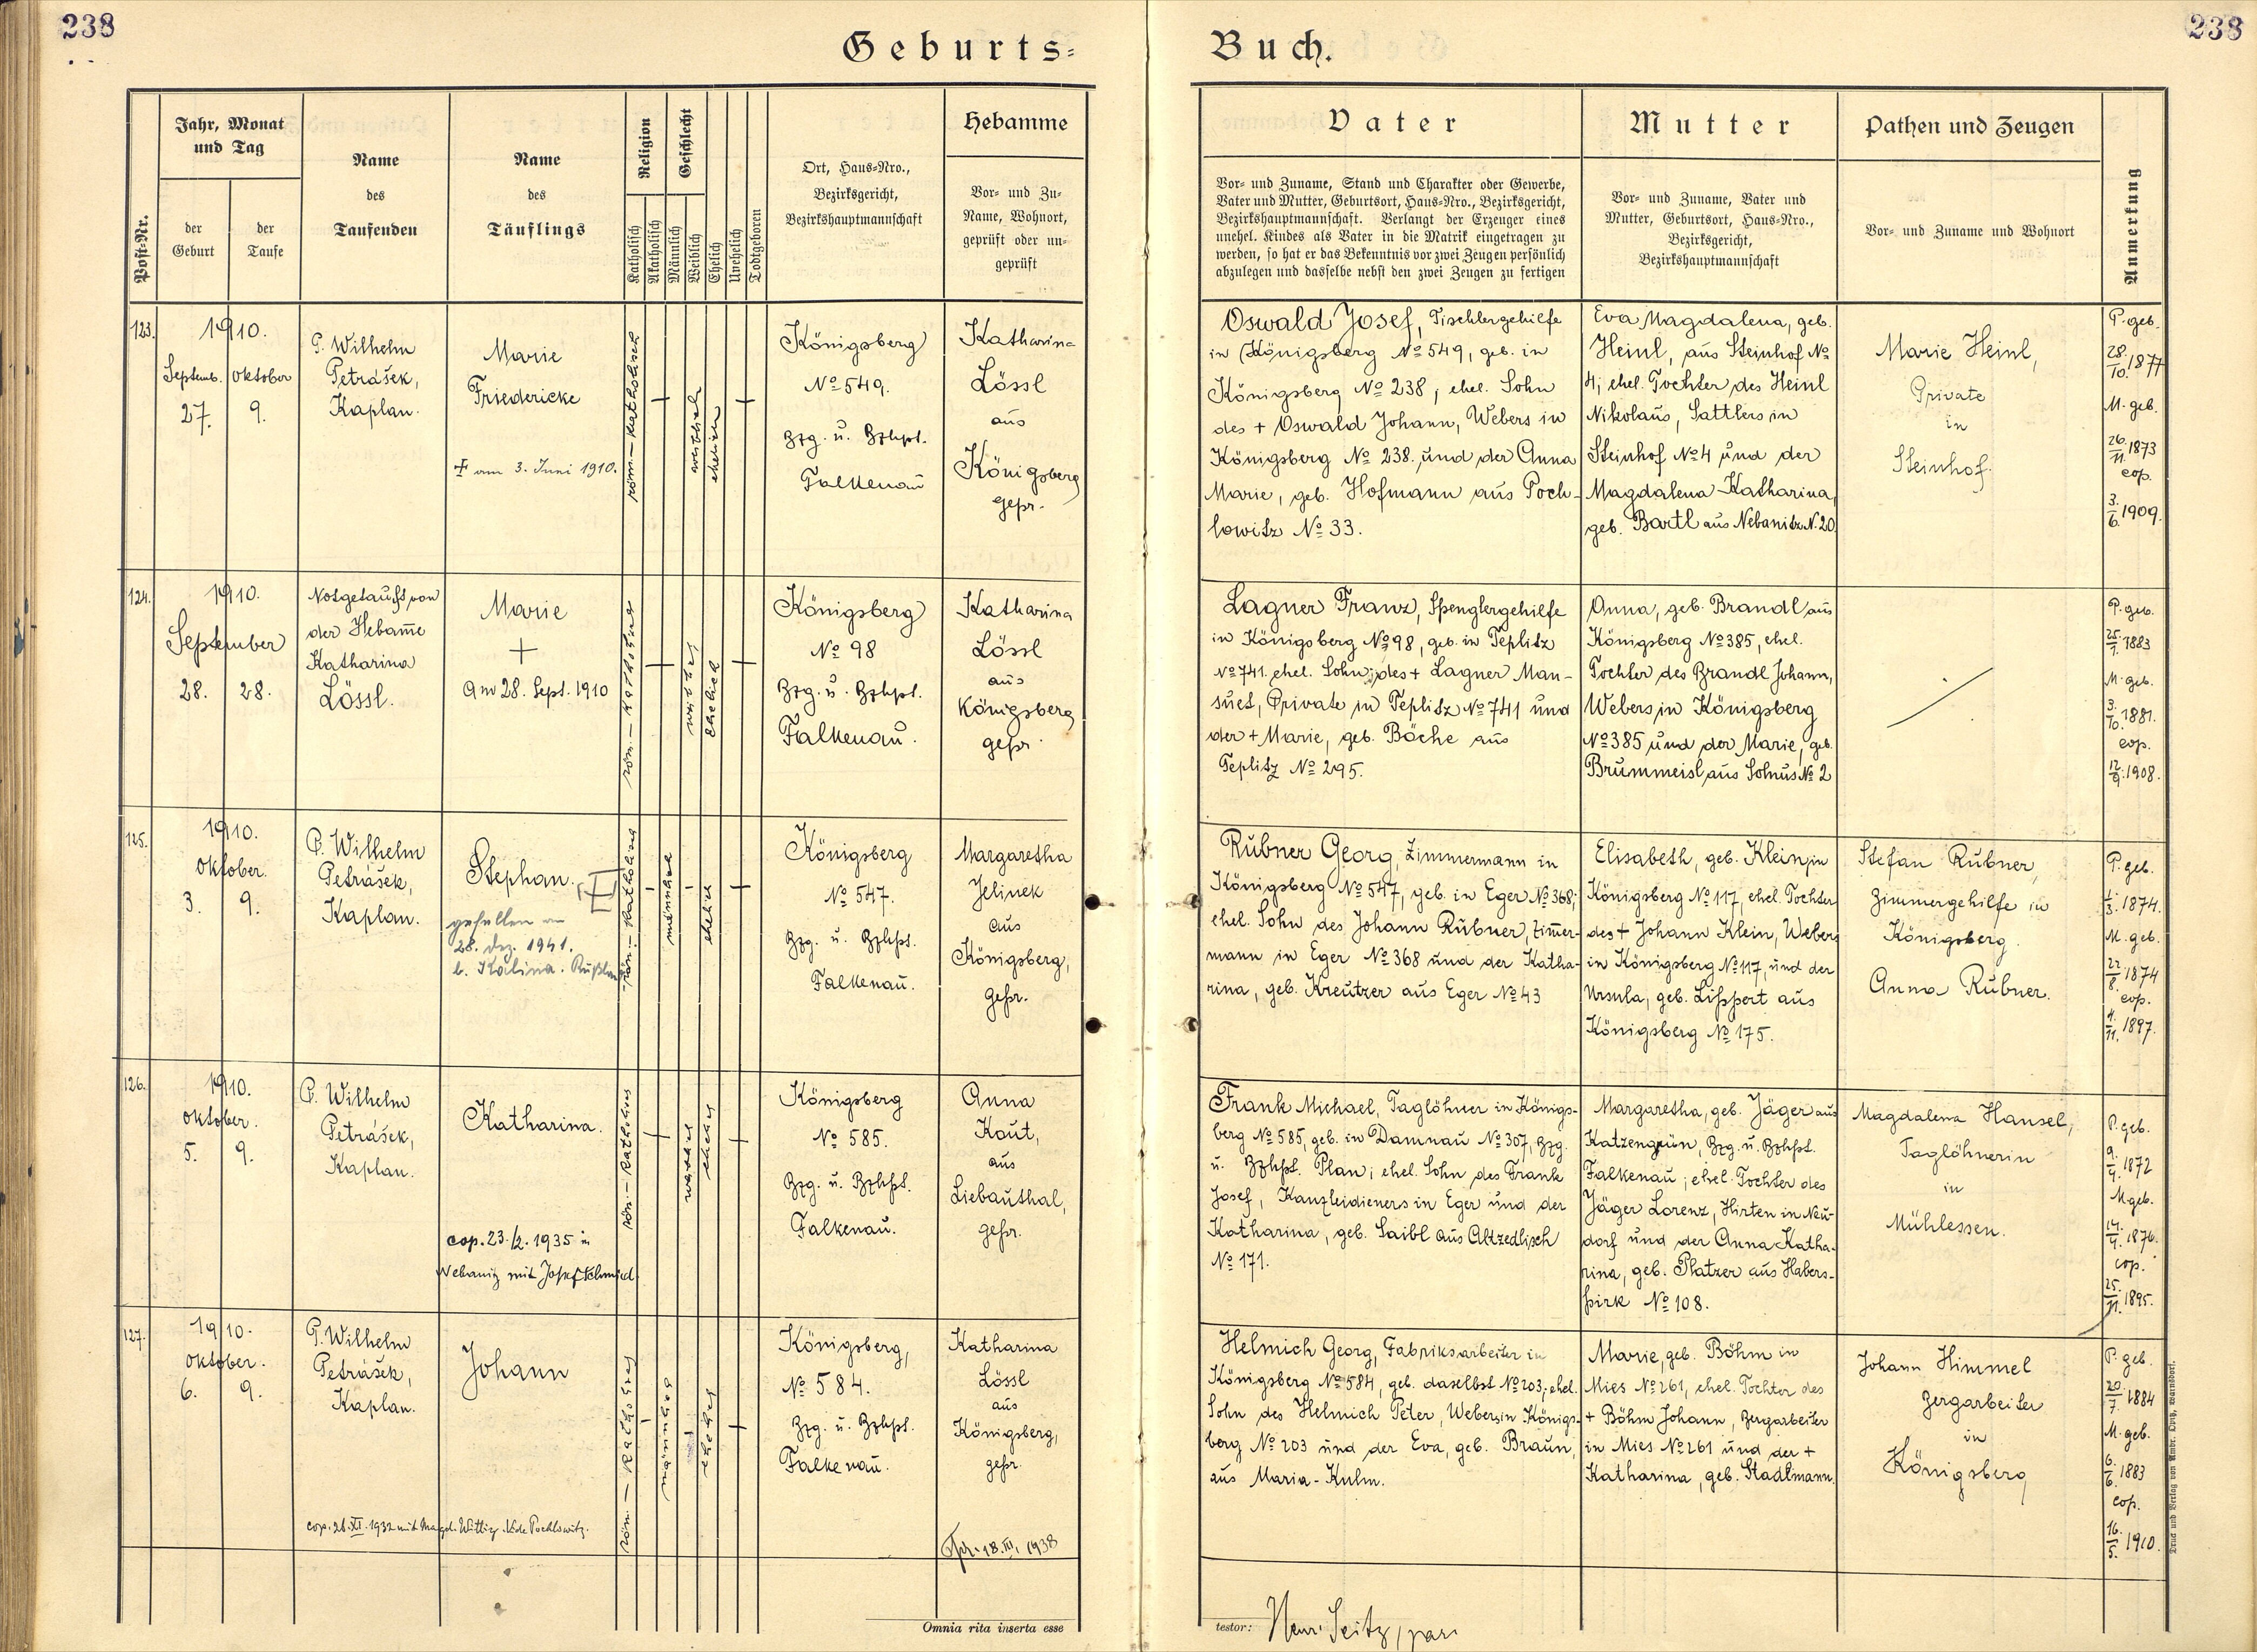 238
Geburts-
Jahr, Monat
und Tag
Post-Nr.
der
Geburt
der
Taufe
Name
des
Taufenden
Name
des
Täuflings
Religion
Katholisch
Akatholisch
Geschlecht
Männlich
Weiblich
Ehelich
Unehelich
Todtgeboren
Ort, Haus-Nro.,
Bezirksgericht,
Bezirkshauptmannschaft
Hebamme
Vor- und Zu-
Name, Wohnort,
geprüft oder un-
geprüft
123.
1910.
Septemb.
27.
Oktober
9.
P. Wilhelm
Petrášek,
Kaplan.
Marie
Friedericke
am 3. Juni 1910.
röm.-katholisch
weiblich
ehelich
Königsberg
No 549.
Bzg. u. Bzhpt.
Falkenau
Katharina
Lössl
aus
Königsberg
gepr.
124.
1910.
September
28. 28.
Notgetauft von
der Hebame
Katharina
Lössl.
Marie
+
am 28. Sept. 1910
Königsberg
No 98
Bzg. u. Bzhpt.
Falkenau.
Katharina
Lössl
aus
Königsberg
gepr.
125.
1910.
Oktober.
3. 9.
P. Wilhelm
Petrášek,
Kaplan.
Stephan.
gefallen
28. Dez. 1941.
b. Kalina.
männlich
ehelich
Königsberg
No 547.
Bzg. u. Bzhpt.
Falkenau.
Margaretha
Jelinek
aus
Königsberg,
gepr.
126.
1910.
Oktober.
5. 9.
P. Wilhelm
Petrášek,
Kaplan.
Katharina.
cop. 23./2. 1935 in
Nebanitz mit Josef Schmied
Königsberg
No 585.
Bzg. u. Bzhpt.
Falkenau.
Anna
Kout,
aus
Liebauthal,
gepr.
127.
1910.
Oktober.
6. 9.
P. Wilhelm
Petrášek,
Kaplan.
Johann
cop. 26. XI. 1932 mit Magd. Wittig. Pochlowitz.
Königsberg,
No 584.
Bzg. u. Bzhpt.
Falkenau.
Katharina
Lössl
aus
Königsberg,
gepr.
18. III. 1938
Omnia rita inserta esse
238
Buch.
Vater
Vor- und Zuname, Stand und Charakter oder Gewerbe,
Vater und Mutter, Geburtsort, Haus-Nro., Bezirksgericht,
Bezirkshauptmannschaft. Verlangt der Erzeuger eines
unehel. Kindes als Vater in die Matrik eingetragen zu
werden, so hat er das Bekenntnis vor zwei Zeugen persönlich
abzulegen und dasselbe nebst den zwei Zeugen zu fertigen
Mutter
Vor- und Zuname, Vater und
Mutter, Geburtsort, Haus-Nro.,
Bezirksgericht,
Bezirkshauptmannschaft
Pathen und Zeugen
Vor- und Zuname und Wohnort
Anmerkung
Oswald Josef, Tischlergehilfe
in Königsberg No 549, geb. in
Königsberg No 238, ehel. Sohn
des + Oswald Johann, Webers in
Königsberg No 238. und der Anna
Marie, geb. Hofmann aus Poch-
lowitz No 33.
Eva Magdalena, geb.
Heinl, aus Steinhof No
4; ehel. Tochter des Heinl
Nikolaus, Sattlers in
Steinhof No 4 und der
Magdalena Katharina,
geb. Bartl aus Nebanitz N. 20
Marie Heinl,
Private
in
Steinhof.
P. geb.
28./10. 1877
M. geb.
26./11. 1873
cop.
3./6. 1909.
Lagner Franz, Spenglergehilfe
in Königsberg No 98, geb. in Teplitz
No 741. ehel. Sohn des + Lagner Man-
suet, Private in Teplitz No 741 und
der + Marie, geb. Böche aus
Teplitz No 295.
Anna, geb. Brandl aus
Königsberg No 385, ehel.
Tochter des Brandl Johann,
Webers in Königsberg
No 385 und der Marie, geb.
Brummeisl aus Schnus No 2
P. geb.
25./7. 1883
M. geb.
3./10. 1881.
cop.
12./9. 1908.
Rubner Georg, Zimmermann in
Königsberg No 547, geb. in Eger No 368;
ehel. Sohn des Johann Rubner, Zimer-
mann in Eger No 368 und der Katha-
rina, geb. Kreutzer aus Eger No 43
Elisabeth, geb. Klein, in
Königsberg No 117, ehel. Tochter
des + Johann Klein, Webers
in Königsberg No 117, und der
Ursula, geb. Lippert aus
Königsberg No 175.
Stefan Rubner,
Zimmergehilfe in
Königsberg.
Anna Rubner.
P. geb.
1./3. 1874.
M. geb.
22./8. 1874
cop.
4./11. 1897.
Frank Michael, Taglöhner in Königs-
berg No 585, geb. in Damnau No 307, Bzg.
u. Bzhpt. Plan; ehel. Sohn des Frank
Josef, Kanzleidieners in Eger und der
Katharina, geb. Saibl aus Altzedlisch
No 171.
Margaretha, geb. Jäger aus
Katzengrün, Bzg. u. Bzhpt.
Falkenau; ehel. Tochter des
Jäger Lorenz, Hirten in Neu-
dorf und der Anna Katha-
rina, geb. Platzer aus Habers-
pirk No 108.
Magdalena Hansel,
Taglöhnerin
in
Mühlessen.
P. geb.
9./4. 1872
M. geb.
14./4. 1876.
cop.
25./11. 1895.
Helmich Georg, Fabriksarbeiter in
Königsberg No 584, geb. daselbst No 203; ehel.
Sohn des Helmich Peter, Webers in Königs-
berg No 203 und der Eva, geb. Braun,
aus Maria-Kulm.
Marie, geb. Böhm in
Mies No 261, ehel. Tochter des
+ Böhm Johann, Bergarbeiter
in Mies No 261 und der +
Katharina, geb. Stadlmann.
Johann Himmel
Bergarbeiter
in
Königsberg
P. geb.
20./7. 1884
M. geb.
6./6. 1883
cop.
16./5. 1910.
testor: Seitz
Druck und Verlag von Ambr. Opitz, Warnsdorf.